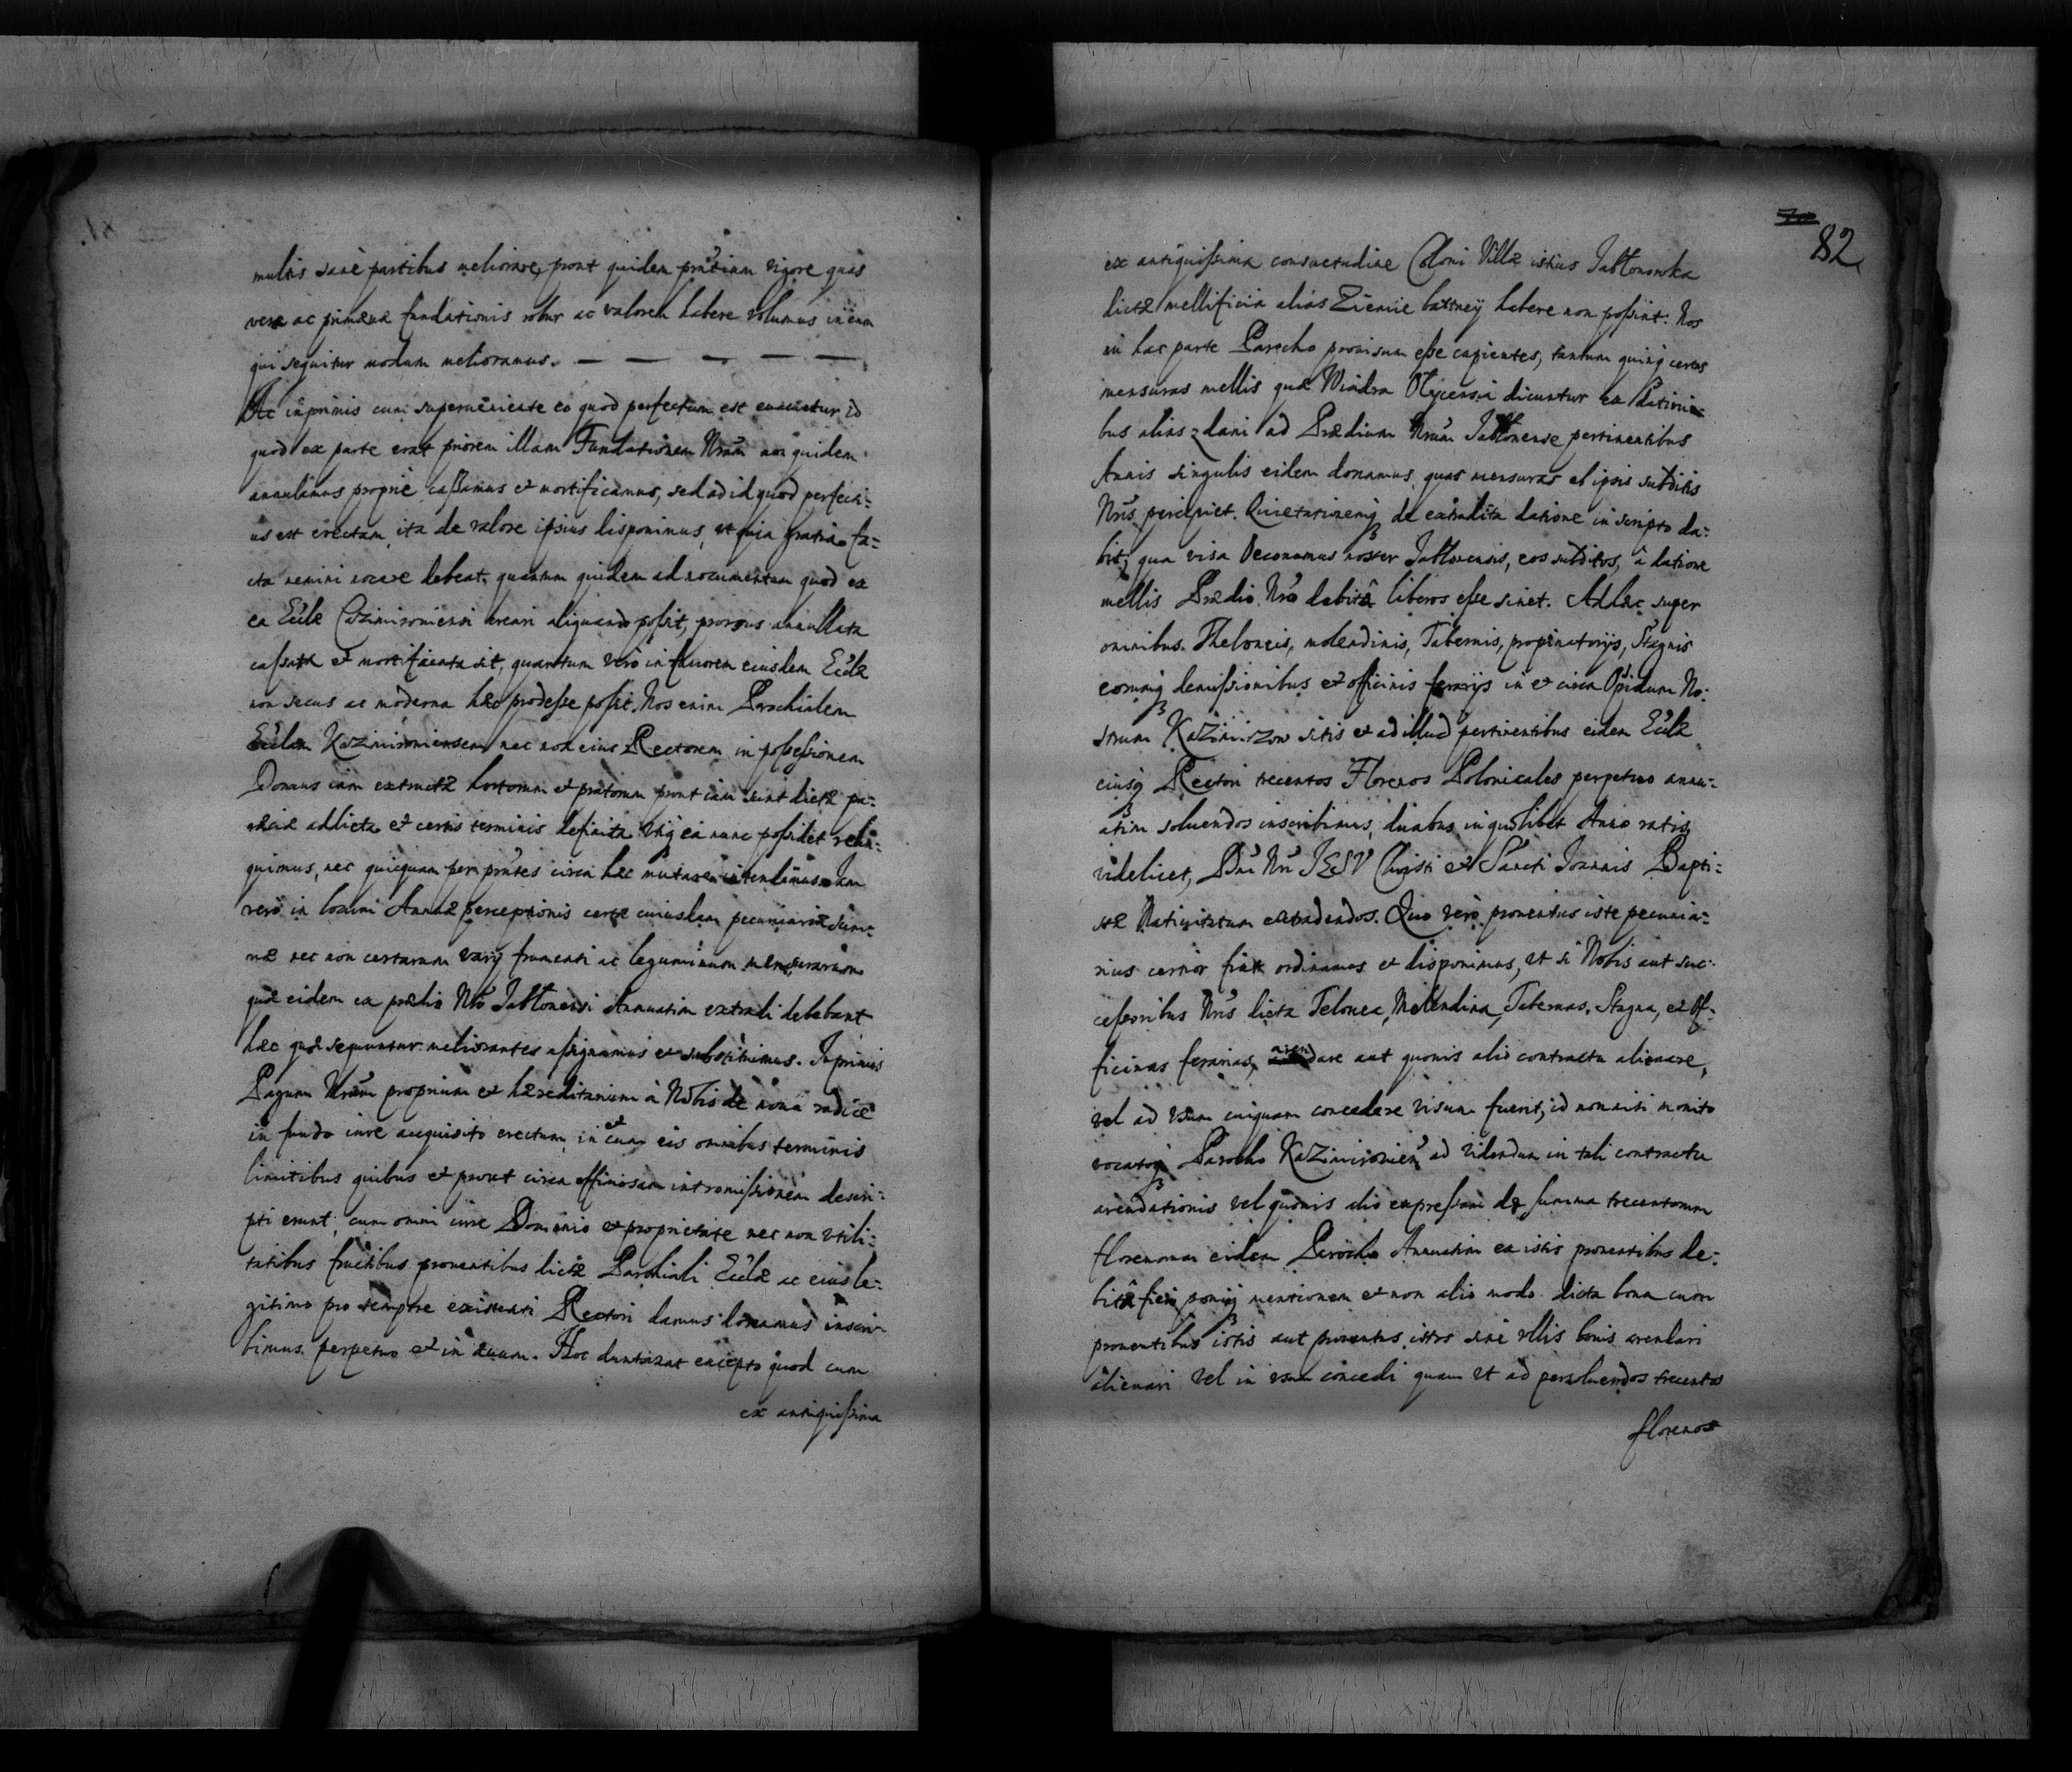 multis sanè partibus meliorare, prout quidem pñtium vigore quas
veræ ac primævæ fundationis robur ac valorem habere volumus in eum
qui sequitur modum melioramus. — — — — —
Ac inprimis cum superveniente eo quod perfectum est evacuetur id
quod ex parte erat priorem illam Fundationem Nrãm non quidem
annullamus propriè cassamus et mortificamus, sed ad id quod perfecti:
us est erectam, ita de valore ipsius disponimus, ut quia gratia fa:
cta nemini nocere debeat, quantum quidem ad nocumentum quod ex
ea Eccłæ Cazimiroviensi creari aliquando possit, prorsus annullata
cassata et mortificata sit, quantum verò in favorem eiusdem Eccłæ
non secus ac moderna hæc prodesse possit. Nos enim Parochialem
Eccłam Kazimiroviensem nec non eius Rectorem in possessionem
Domus iam extructæ hortorum et pratorum prout iam sunt dictæ pa:
rociæ addicta et certis terminis definita utiq̃ ea nunc possidet relin:
quimus, nec quicquam per pñtes circa hæc mutare intendimus. Iam
verò in locum Annuæ perceptionis certæ cuiusdam pecuniariæ sum:
mæ nec non certarum varij frumenti ac leguminum mensurarum
quæ eidem ex prædio Nrõ Jabłonensi Annuatim extradi debebant
hæc quæ sequuntur meliorantes assignamus et substituimus. Inprimis
Pagum Nrũm proprium et hæreditarium à Nobis de nova radice
in fundo iure acquisito erectum, in et cum eis omnibus terminis
limitibus quibus et prout circa officiosam intromissionem descri:
pti erunt; cum omni iure Dominio et proprietate nec non utili:
tatibus fructibus proventibus dictæ Parochiali Eccłæ ac eius le:
gitimo pro tempore existenti Rectori damus donamus inscri:
bimus perpetuo et in ævum. Hoc duntaxat excepto quod cum
ex antiquissima
82
ex antiquissima consuetudine Coloni Villæ istius Jabłonowka
dictæ mellificia alias Ziemie bartney habere non possint: Nos
in hac parte Parocho provisum esse cupientes, tantum quinq̃ certas
mensuras mellis quæ Wiadra Ołycensia dicuntur ex dationi:
bus alias z dani ad Prædium Nrũm Jabłonense pertinentibus
Annis singulis eidem donamus, quas mensuras ab ipsis subditis
Nrĩs percipiet. Quietationemq̃ de extradita datione in scripto da:
bit, qua visa Oeconomus noster Jabłonensis, eos subditos, à datione
mellis Prædio Nrõ debitâ liberos esse sinet. Ad hæc super
omnibus Theloneis, molendinis, Tabernis, propinatorijs, Stagnis
eorumq̃ demissionibus et officinis ferarijs in et circa Opidum No:
strum Kazimirzow sitis et ad illud pertinentibus eidem Eccłæ
eiusq̃ Rectori trecentos Florenos Polonicales perpetuo annu:
atim solvendos inscribimus, duabus in quolibet Anno ratis,
videlicet, Dñi Nrĩ JESU Christi et Sancti Joannis Bapti:
stæ Nativitatum extradendos. Quo verò proventus iste pecunia:
rius certior fiat ordinamus et disponimus, ut si Nobis aut suc:
cessoribus Nrĩs dicta Telonea, Molendina, Tabernas, Stagna, et Of:
ficinas ferarias, arendare aut quovis alio contractu alienare,
vel ad usum cuiquam concedere visum fuerit, id non nisi monito
vocatoq̃ Parocho Kazimirovień ad videndum in tali contractu
arendationis vel quovis alio expressam de summa trecentorum
florenorum eidem Parocho Annuatim ex istis proventibus de:
bitâ fieri poniq̃ mentionem et non alio modo dicta bona cum
proventibus istis aut proventus istos sine ullis bonis arendari
alienari vel in usum concedi quam ut ad persolvendos trecentos
florenos